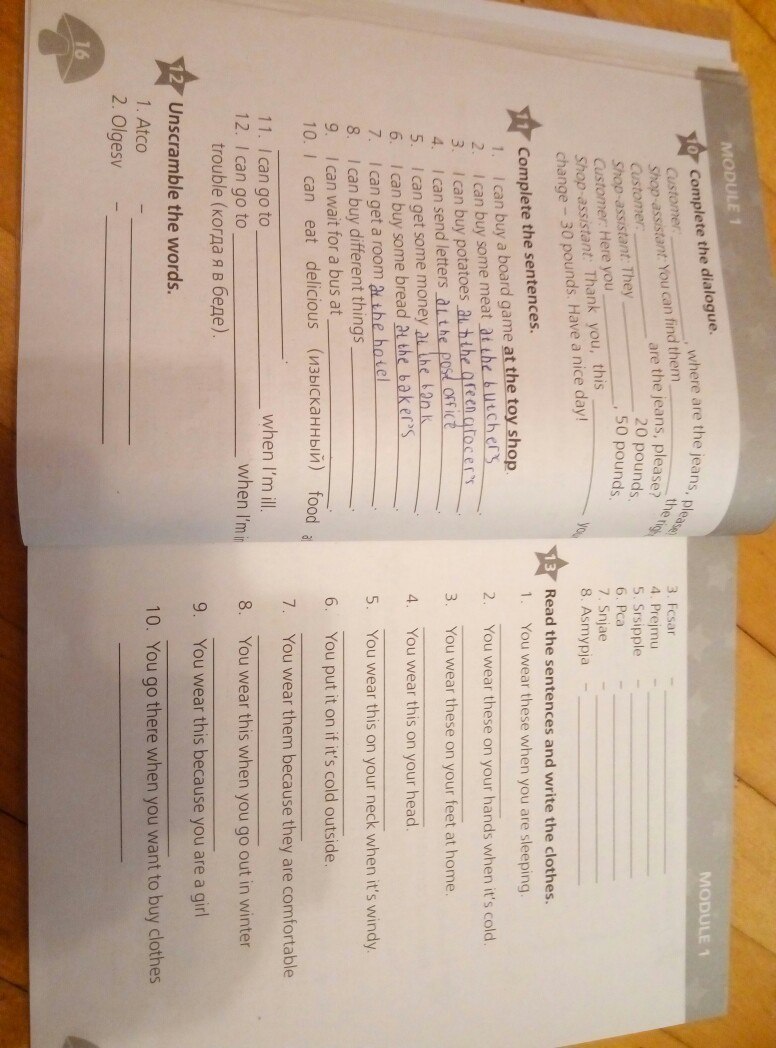 MODULE 1
10 Complete the dialogue.
Customer: ________, where are the jeans, please
Shop-assistant: You can find them ________ the
Customer: ________ are the jeans, please?
Shop-assistant: They ________ 20 pounds.
Customer: Here you ________, 50 pounds.
Shop-assistant: Thank you, this ________
change – 30 pounds. Have a nice day!
11 Complete the sentences.
1. I can buy a board game at the toy shop.
2. I can buy some meat at the butcher's.
3. I can buy potatoes at the greengrocer's.
4. I can send letters at the post office.
5. I can get some money at the bank.
6. I can buy some bread at the baker's.
7. I can get a room at the hotel
8. I can buy different things ________.
9. I can wait for a bus at ________.
10. I can eat delicious (изысканный) food
________.
11. I can go to ________ when I'm ill.
12. I can go to ________ when I'm
trouble (когда я в беде).
12 Unscramble the words.
1. Atco – ________
2. Olgesv – ________
16
MODULE 1
3. Fcsar – ________
4. Prejmu – ________
5. Srsipple – ________
6. Pca – ________
7. Snjae – ________
8. Asmypja – ________
13 Read the sentences and write the clothes.
1. You wear these when you are sleeping.
________
2. You wear these on your hands when it's cold.
________
3. You wear these on your feet at home.
________
4. You wear this on your head.
________
5. You wear this on your neck when it's windy.
________
6. You put it on if it's cold outside.
________
7. You wear them because they are comfortable
________
8. You wear this when you go out in winter
________
9. You wear this because you are a girl
________
10. You go there when you want to buy clothes
________